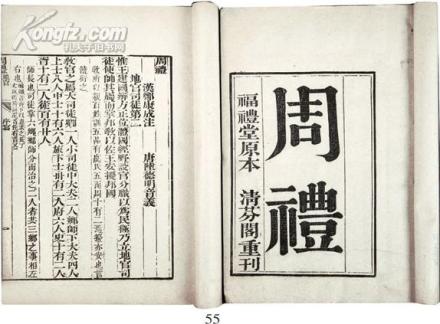 Kongfz.com
孔夫子旧书网
周禮
福禮堂原本
清芬閣重刊
周禮
地官司徒第二
漢鄭康成注
唐陸德明音義
惟王建國辨方正位體國經野設官分職以為民極乃立地官司
徒使帥其屬而掌邦教以佐王安擾邦國
教官之屬大司徒卿一人小司徒中大夫二人鄉師下大夫四人
上士八人中士十有六人旅下士卅有二人府六人史十有二人
胥十有二人徒百有廿人
師長也司徒掌六鄉鄉師分而治之二人者共三鄉之事相左
右也
55